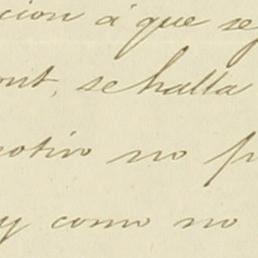 cion á que se
ont, se halla
otivo no p
y como no